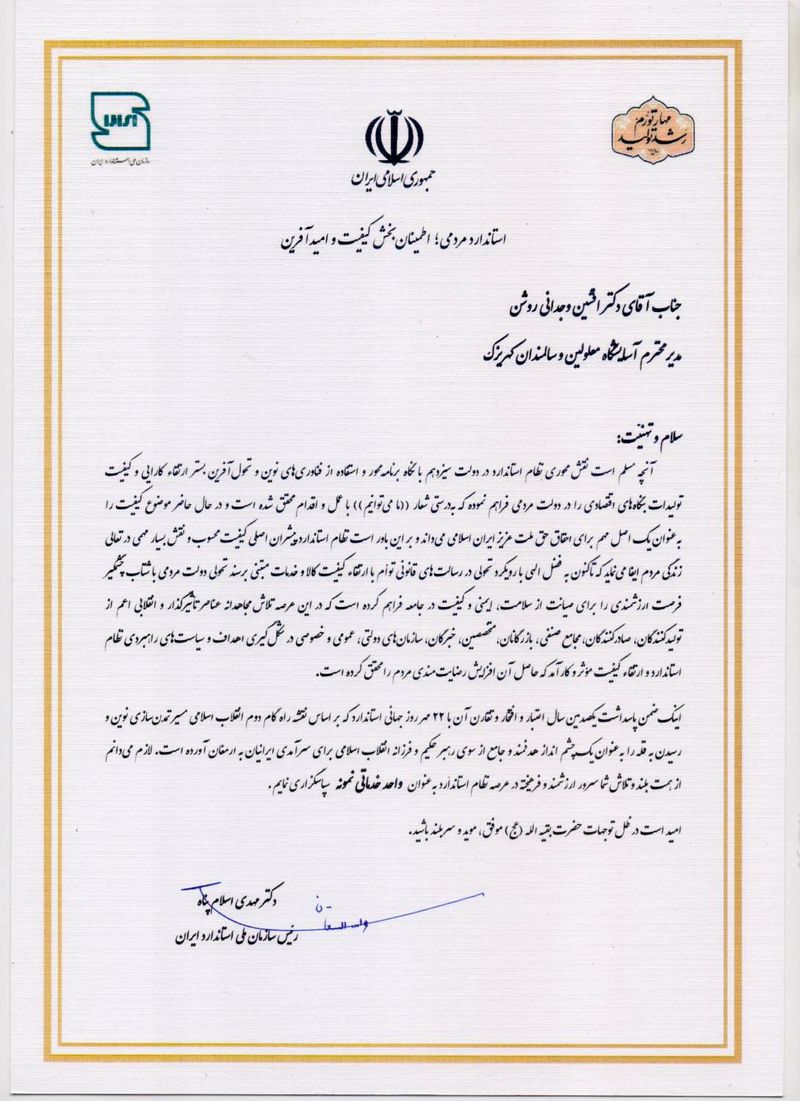 مهار تورم
رشد تولید
سازمان ملی استاندارد ایران
جمهوری اسلامی ایران
استاندارد مردمی؛ اطمینان بخش کیفیت و امید آفرین
جناب آقای دکتر افشین وجدانی روشن
مدیر محترم آسایشگاه معلولین و سالمندان کهریزک
سلام و تهنیت:
آنچه مسلم است نقش محوری نظام استاندارد در دولت سیزدهم با نگاه برنامه محور و استفاده از فناوری‌های نوین و تحول آفرین بستر ارتقاء کارایی و کیفیت
تولیدات بنگاه‌های اقتصادی را در دولت مردمی فراهم نموده که به‌درستی شعار ((ما می‌توانیم)) با عمل و اقدام محقق شده است و در حال حاضر موضوع کیفیت را
به عنوان یک اصل مهم برای احقاق حق ملت عزیز ایران اسلامی می‌داند و بر این باور است نظام استاندارد پیشران اصلی کیفیت محسوب و نقش بسیار مهمی در تعالی
زندگی مردم ایفا می‌نماید که تاکنون به فضل الهی با رویکرد تحولی در رسالت‌های قانونی توأم با ارتقاء کیفیت کالا و خدمات مبتنی بر سند تحولی دولت مردمی با شتاب چشمگیر
فرصت ارزشمندی را برای صیانت از سلامت، ایمنی و کیفیت در جامعه فراهم کرده است که در این عرصه تلاش مجاهدانه عناصر تأثیرگذار و انقلابی اعم از
تولیدکنندگان، صادرکنندگان، مجامع صنفی، بازرگانان، متخصصین، خبرگان، سازمان‌های دولتی، عمومی و خصوصی در شکل گیری اهداف و سیاست‌های راهبردی نظام
استاندارد و ارتقاء کیفیت مؤثر و کارآمد که حاصل آن افزایش رضایت مندی مردم را محقق کرده است.
اینک ضمن پاسداشت یکصدمین سال اعتبار و افتخار و تقارن آن با ۲۲ مهر روز جهانی استاندارد که بر اساس نقشه راه گام دوم انقلاب اسلامی مسیر تمدن‌سازی نوین و
رسیدن به قله را به‌عنوان یک چشم انداز هدفمند و جامع از سوی رهبر حکیم و فرزانه انقلاب اسلامی برای سرآمدی ایرانیان به ارمغان آورده است. لازم می‌دانم
از همت بلند و تلاش شما سرور ارزشمند و فرهیخته در عرصه نظام استاندارد به‌عنوان واحد خدماتی نمونه سپاسگزاری نمایم.
امید است در ظل توجهات حضرت بقیه الله (عج) موفق، موید و سربلند باشید.
دکتر مهدی اسلام پناه
رئیس سازمان ملی استاندارد ایران